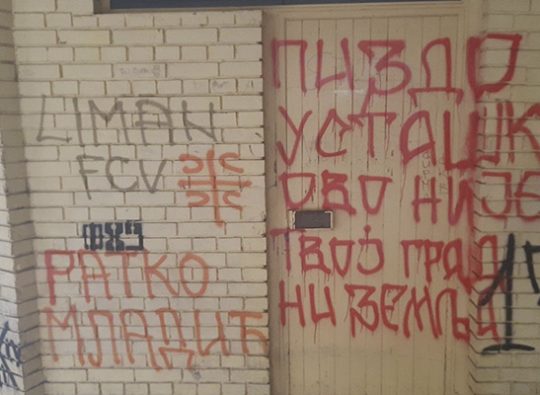 LIMAN
FCV
РАТКО
МЛАДИЋ
ПИЗДО
УСТАШК
ОВО НИЈЕ
ТВОЈ ГРАД
НИ ЗЕМЉА